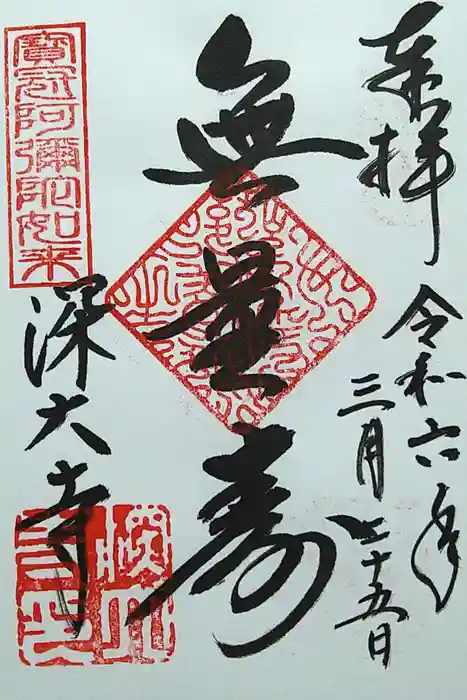 奉拝
令和六年
三月二十五日
無量壽
寳冠阿彌陀如来
深大寺